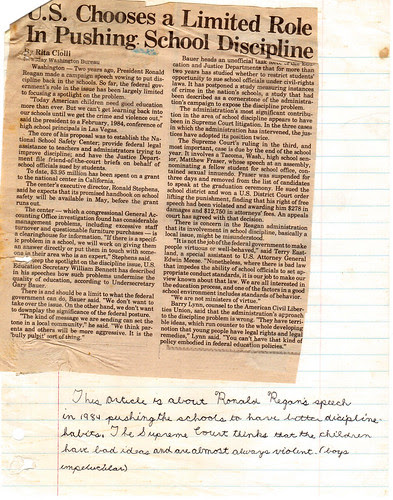 U.S. Chooses a Limited Role
In Pushing School Discipline
By Rita Ciolli
Newsday Washington Bureau
Washington — Two years ago, President Ronald
Reagan made a campaign speech vowing to put dis-
cipline back in the schools. So far, the federal govern-
ment's role in the issue has been largely limited
to focusing a spotlight on the problem.
"Today American children need good education
more than ever. But we can't get learning back into
our schools until we get the crime and violence out,"
said the president to a February, 1984, conference of
high school principals in Las Vegas.
The core of his proposal was to establish the Na-
tional School Safety Center; provide federal legal
assistance to teachers and administrators trying to
improve discipline; and have the Justice Depart-
ment file friend-of-the-court briefs on behalf of
school officials sued by students.
To date, $3.95 million has been spent on a grant
to the national center in California.
The center's executive director, Ronald Stephens,
said he expects that its promised handbook on school
safety will be available in May, before the grant
runs out.
The center — which a congressional General Ac-
counting Office investigation found has considerable
management problems, including excessive staff
turnover and questionable furniture purchases — is
a clearinghouse for information. "If there is a specif-
ic problem in a school, we will work on giving them
an answer directly or put them in touch with some-
one in their area who is an expert," Stephens said.
the spotlight on the discipline issue, U.S.
Education Secretary William Bennett has described
in his speeches how such problems undermine the
quality of education, according to Undersecretary
Gary Bauer.
There is and should be a limit to what the federal
government can do, Bauer said. "We don't want to
take over the issue. On the other hand, we don't want
to downplay the significance of the federal posture.
"The kind of message we are sending can set the
tone in a local community," he said. "We think par-
ents and others will be more aggressive. It is the
'bully pulpit' sort of thing."
Bauer heads an unofficial task
cation and Justice Departments that for more than
two years has studied whether to restrict students'
opportunity to sue school officials under civil-rights
laws. It has postponed a study measuring instances
of crime in the nation's schools, a study that had
been described as a cornerstone of the administra-
tion's campaign to expose the discipline problem.
The administration's most significant contribu-
tion in the area of school discipline appears to have
been in Supreme Court litigation. In the three cases
in which the administration has intervened, the jus-
tices have adopted its position twice.
The Supreme Court's ruling in the third, and
most important, case is due by the end of the school
year. It involves a Tacoma, Wash., high school sen-
ior, Matthew Fraser, whose speech at an assembly,
nominating a fellow student for school office, con-
tained sexual innuendo. Fraser was suspended for
three days and removed from the list of candidates
to speak at the graduation ceremony. He sued the
school district and won a U.S. District Court order
lifting the punishment, finding that his right of free
speech had been violated and awarding him $278 in
damages and $12,750 in attorneys' fees. An appeals
court has agreed with that decision.
There is concern in the Reagan administration
that its involvement in school discipline, basically a
local issue, might be misunderstood.
"It is not the job of the federal government to make
people virtuous or well-behaved," said Terry East-
land, a special assistant to U.S. Attorney General
Edwin Meese. "Nonetheless, where there is bad law
that impedes the ability of school officials to set ap-
propriate conduct standards, it is our job to make our
view known about that law. We are all interested in
the education process, and one of the factors in a good
school environment includes standards of behavior.
"We are not ministers of virtue."
Barry Lynn, counsel to the American Civil Liber-
ties Union, said that the administration's approach
to the discipline problem is wrong. "They have terri-
ble ideas, which run counter to the whole developing
notion that young people have legal rights and legal
remedies," Lynn said. "You can't have that kind of
policy embodied in federal education policies."
This article is about Ronald Regan's speech
in 1984 pushing the schools to have better discipline
habits. The Supreme Court thinks that the children
have bad ideas and are almost always violent. (boys